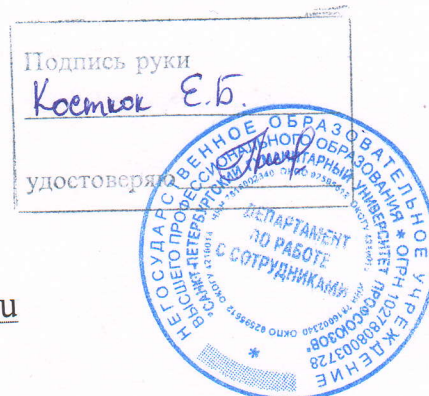 Подпись руки
Костюк Е.Б.
удостоверяю
НЕГОСУДАРСТВЕННОЕ ОБРАЗОВАТЕЛЬНОЕ УЧРЕЖДЕНИЕ
ВЫСШЕГО ПРОФЕССИОНАЛЬНОГО ОБРАЗОВАНИЯ * ОГРН 1027808003728
"САНКТ-ПЕТЕРБУРГСКИЙ ГУМАНИТАРНЫЙ УНИВЕРСИТЕТ ПРОФСОЮЗОВ"
ДЕПАРТАМЕНТ
ПО РАБОТЕ
С СОТРУДНИКАМИ
*
u